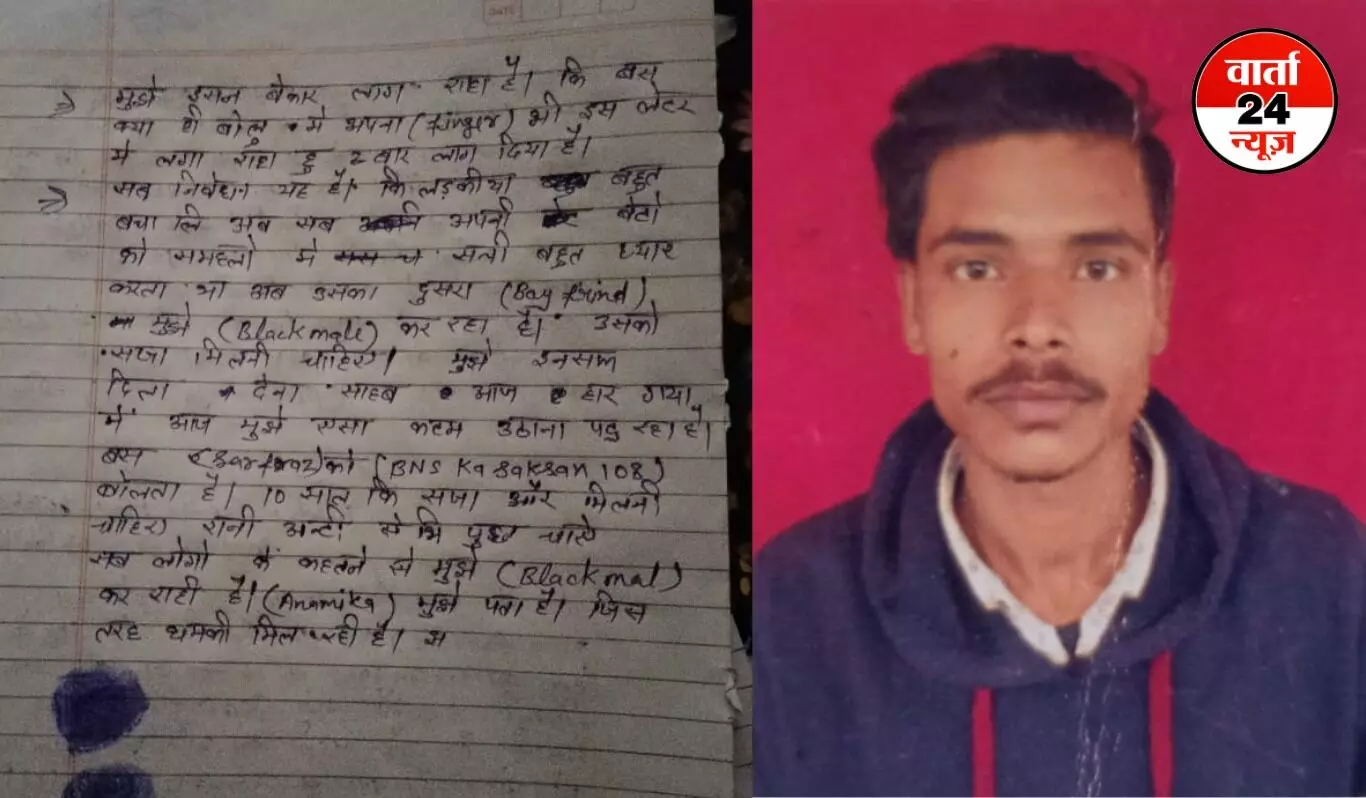 DATE
मुझे इसान बेकार लाग राहा है। कि बस
क्या ही बोलु मे अपना (finger) भी इस लेटर
मे लगा राहा हु 2 बार लाग दिया है।
सब निवेधन यह है। कि लड़कीया बहुत
बचा लि अब सब अपनी बेटो
को समहलो मे सली बहुत प्यार
करता था अब उसका दुसरा (Boy frind)
मुझे (Blackmale) कर रहा है। उसको
सजा मिलनी चाहिए। मुझे इनसाफ
दिला देना साहब आज हार गया
मे आज मुझे एसा कदम उठाना पडु रहा है।
बस (Sarfraz) को (BNS Ka saksan 108)
बोलता है। 10 साल कि सजा और मिलनी
चाहिए रानी अन्टी से भि पुछा चाहे
सब लोगो के कहतने से मुझे (Blackmal)
कर राही है। (Anamika) मुझे पता है। जिस
तरह धमकी मिल रही है। स
वार्ता
24
न्यूज़